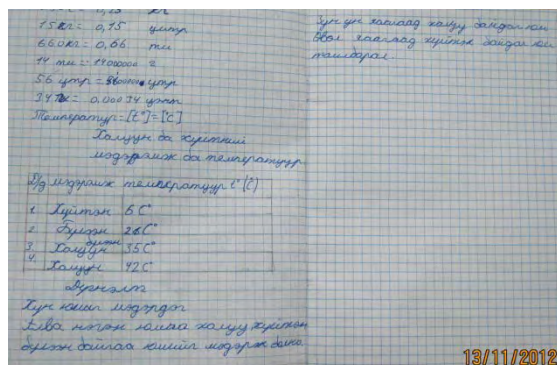 15кг = 0,15 цнтр
660кг = 0,66 тн
14 тн = 14000000 г
56 цтр = цтр
Температур = [t°] = [C]
Халуун ба хүйтний
мэдрэмж ба температуур
Д/д мэдрэмж температуур t° (C)
1. Хүйтэн 6C°
2. Бүлээн 26C°
3. Халуун бүлээн 35C°
4. Халуун 42C°
Дүгнэлт
Хүн юмыг мэдэрдэг
Алива нэгэн юмаа халуу хүйтэн
бүлээн байгаа юмыг мэдэрж болно
Зун ун яагаад халуу байдаг юм
Өвөл яагаад хүйтэн байдаг юм
тайлбарал.
13/11/2012